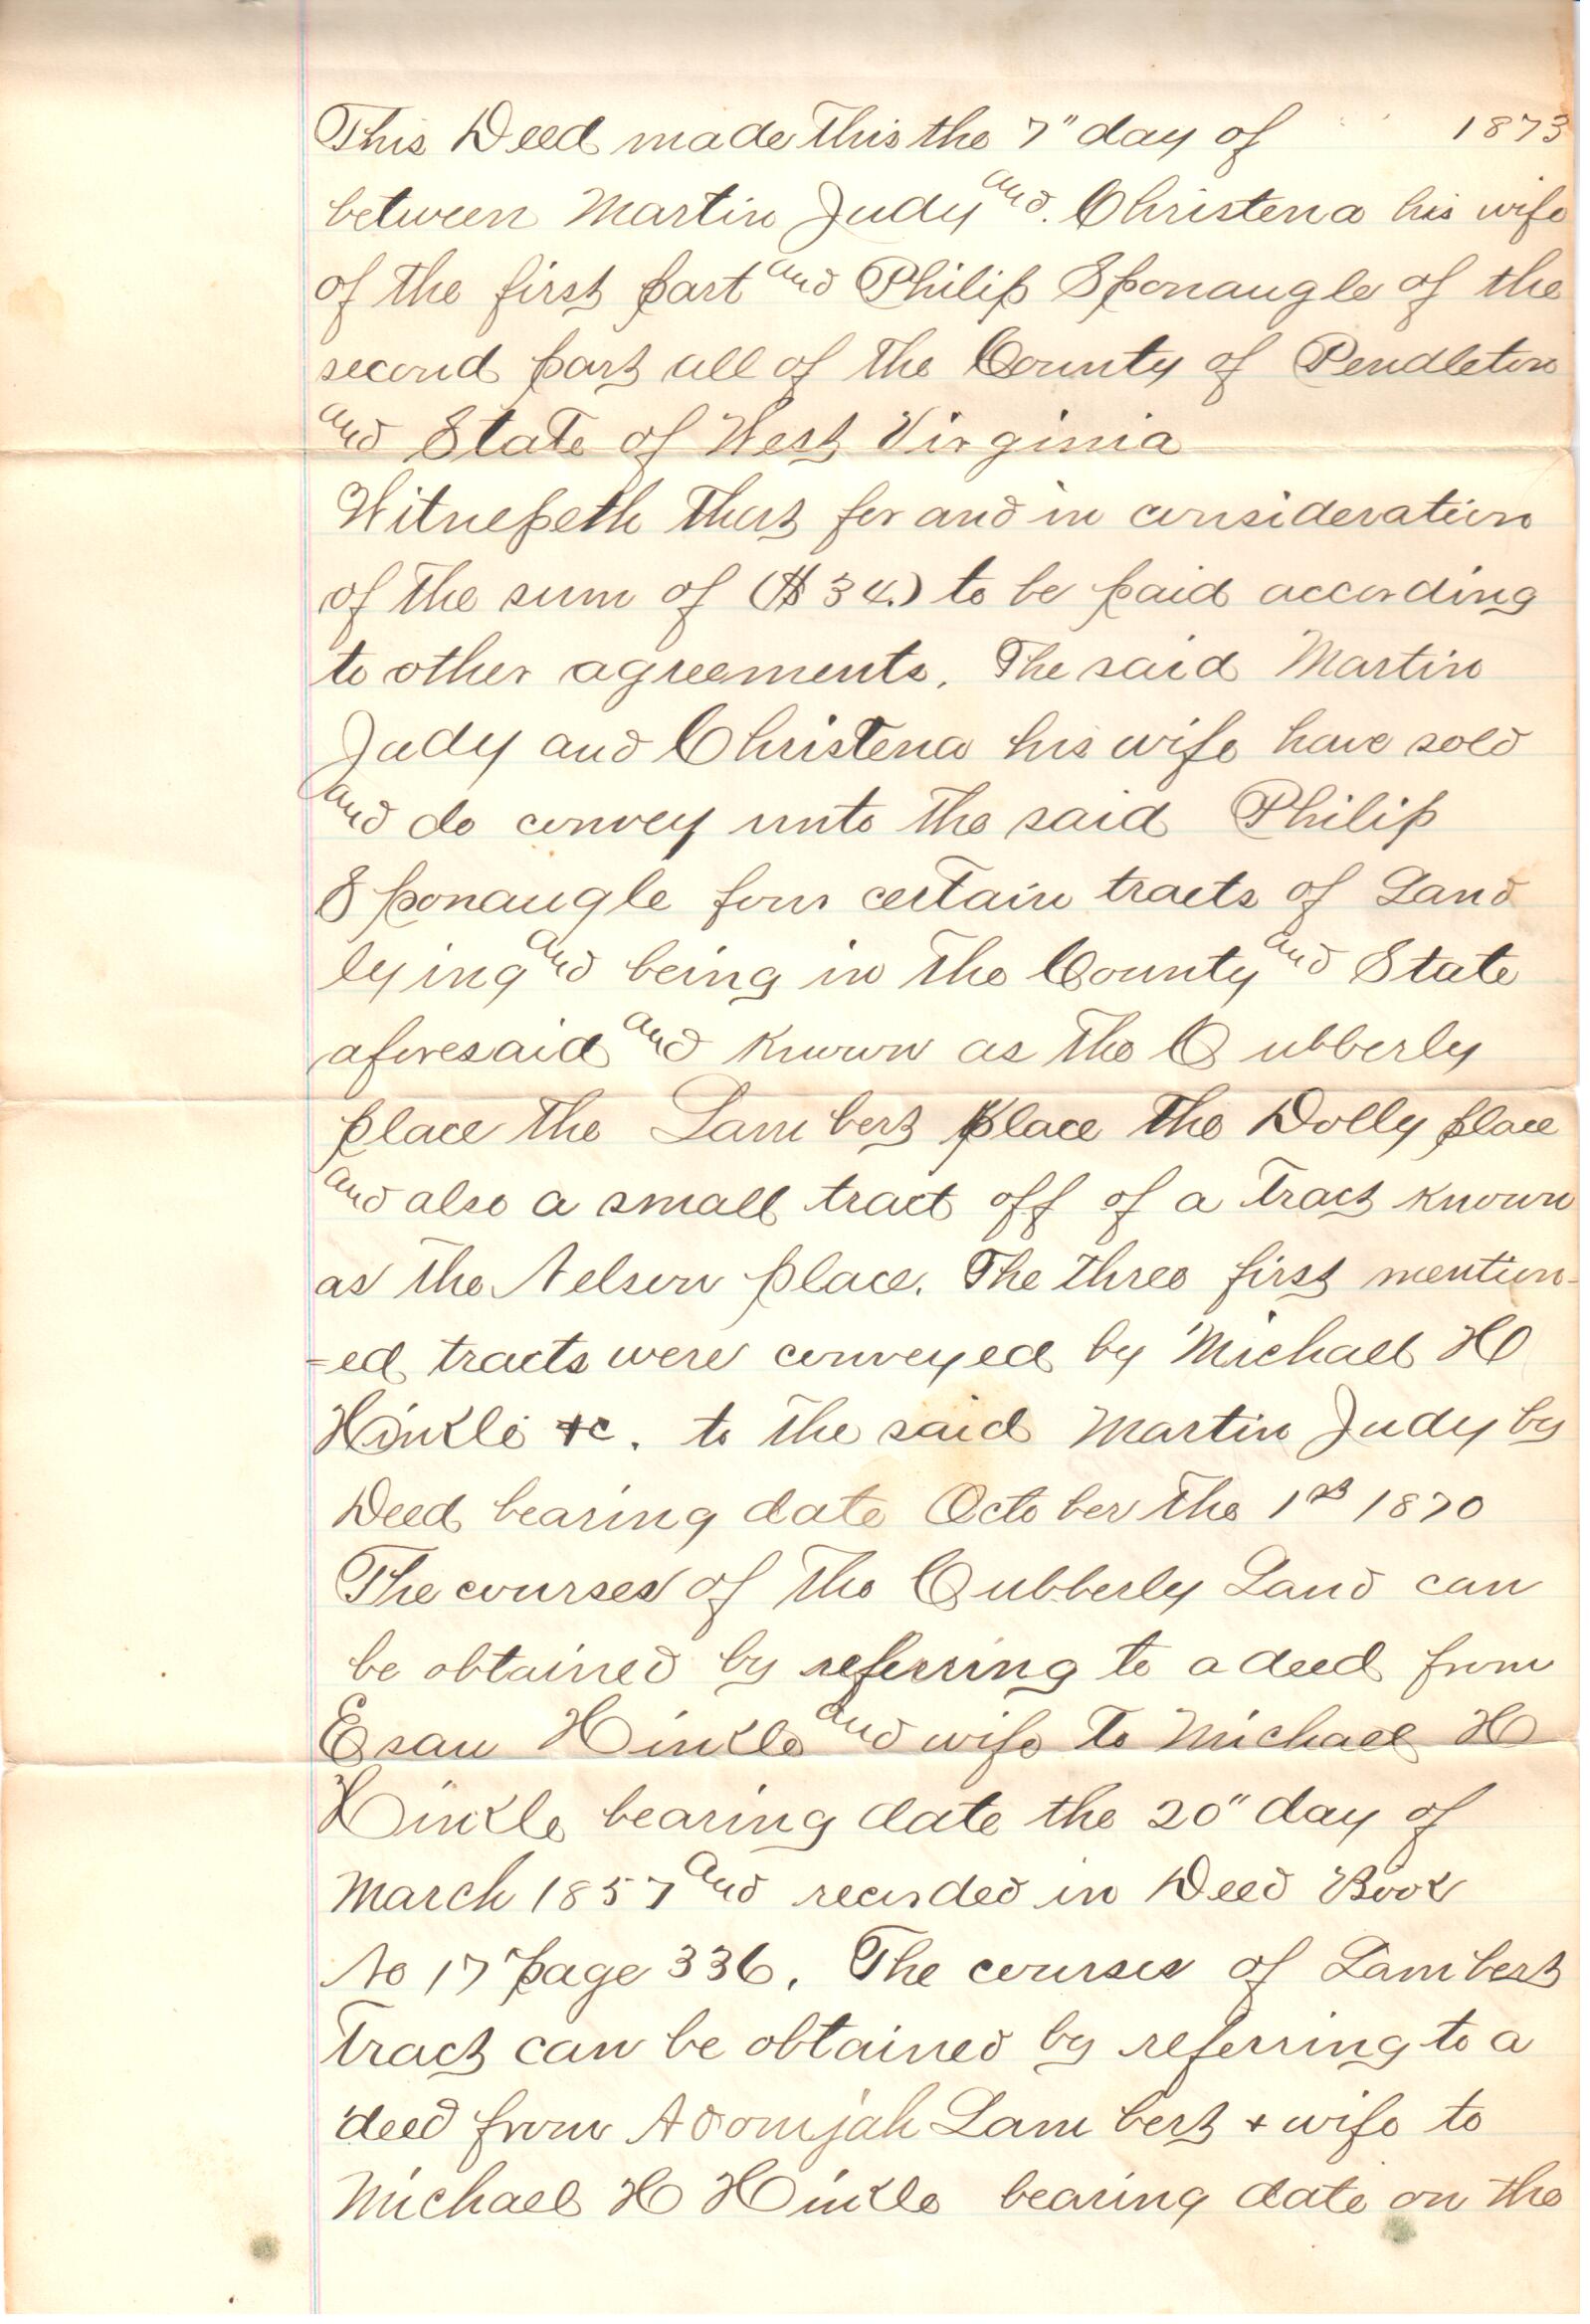 This Deed made this the 7" day of 1873
between Martin Judy and Christena his wife
of the first part and Philip Sponaugle of the
second part all of the County of Pendleton
and State of West Virginia
Witnesseth that for and in consideration
of the sum of ($34.) to be paid according
to other agreements. The said Martin
Judy and Christena his wife have sold
and do convey unto the said Philip
Sponaugle four certain tracts of Land
lying and being in the County and State
aforesaid and known as the Cubberly
place the Lambert place the Dolly place
and also a small tract off of a tract known
as the Nelson place. The three first mention-
-ed tracts were conveyed by Michael H
Hinkle &c. to the said Martin Judy by
Deed bearing date October the 1st 1870
The courses of the Cubberly Land can
be obtained by referring to a deed from
Esau Hinkle and wife to Michael H
Hinkle bearing date the 20" day of
March 1857 and recorded in Deed Book
No 17 page 336. The courses of Lambert
Tract can be obtained by referring to a
deed from Adonijah Lambert + wife to
Michael H Hinkle bearing date on the